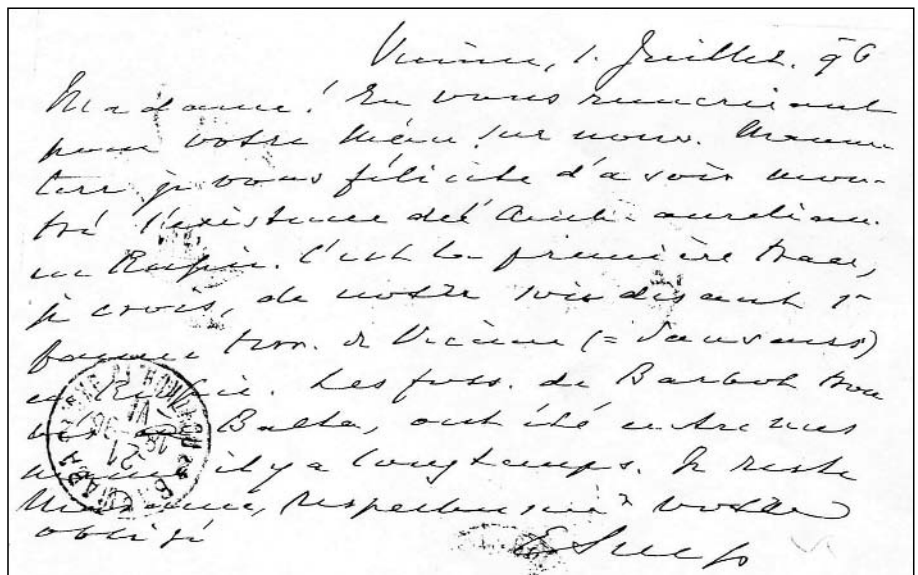 Vienne, 1. Juillet. 96
Madame! En vous remerciant
pour votre Mém. sur nouv.
je vous félicite d'avoir mon-
tré l'existence de l'Anch. aurelian.
en Russie. C'est la première trace,
je crois, de notre soi disant 1e
faune terr. de Vienne (= Sansans)
en Russie. Les foss. de Barbot trou
vés Balta, ont été entre mes
mains il y a longtemps. Je reste
Madame, votre
obligé
E Suess